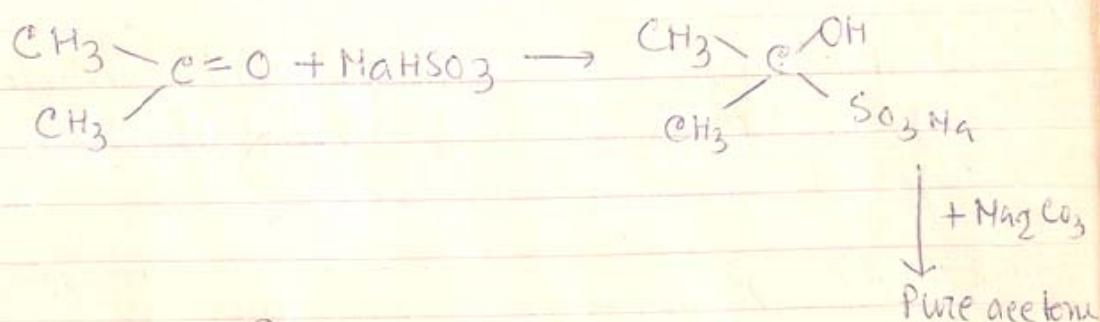 CH3 CH3 OH
C=O + NaHSO3 → C
CH3 CH3 SO3Na
+ Na2CO3
Pure acetone